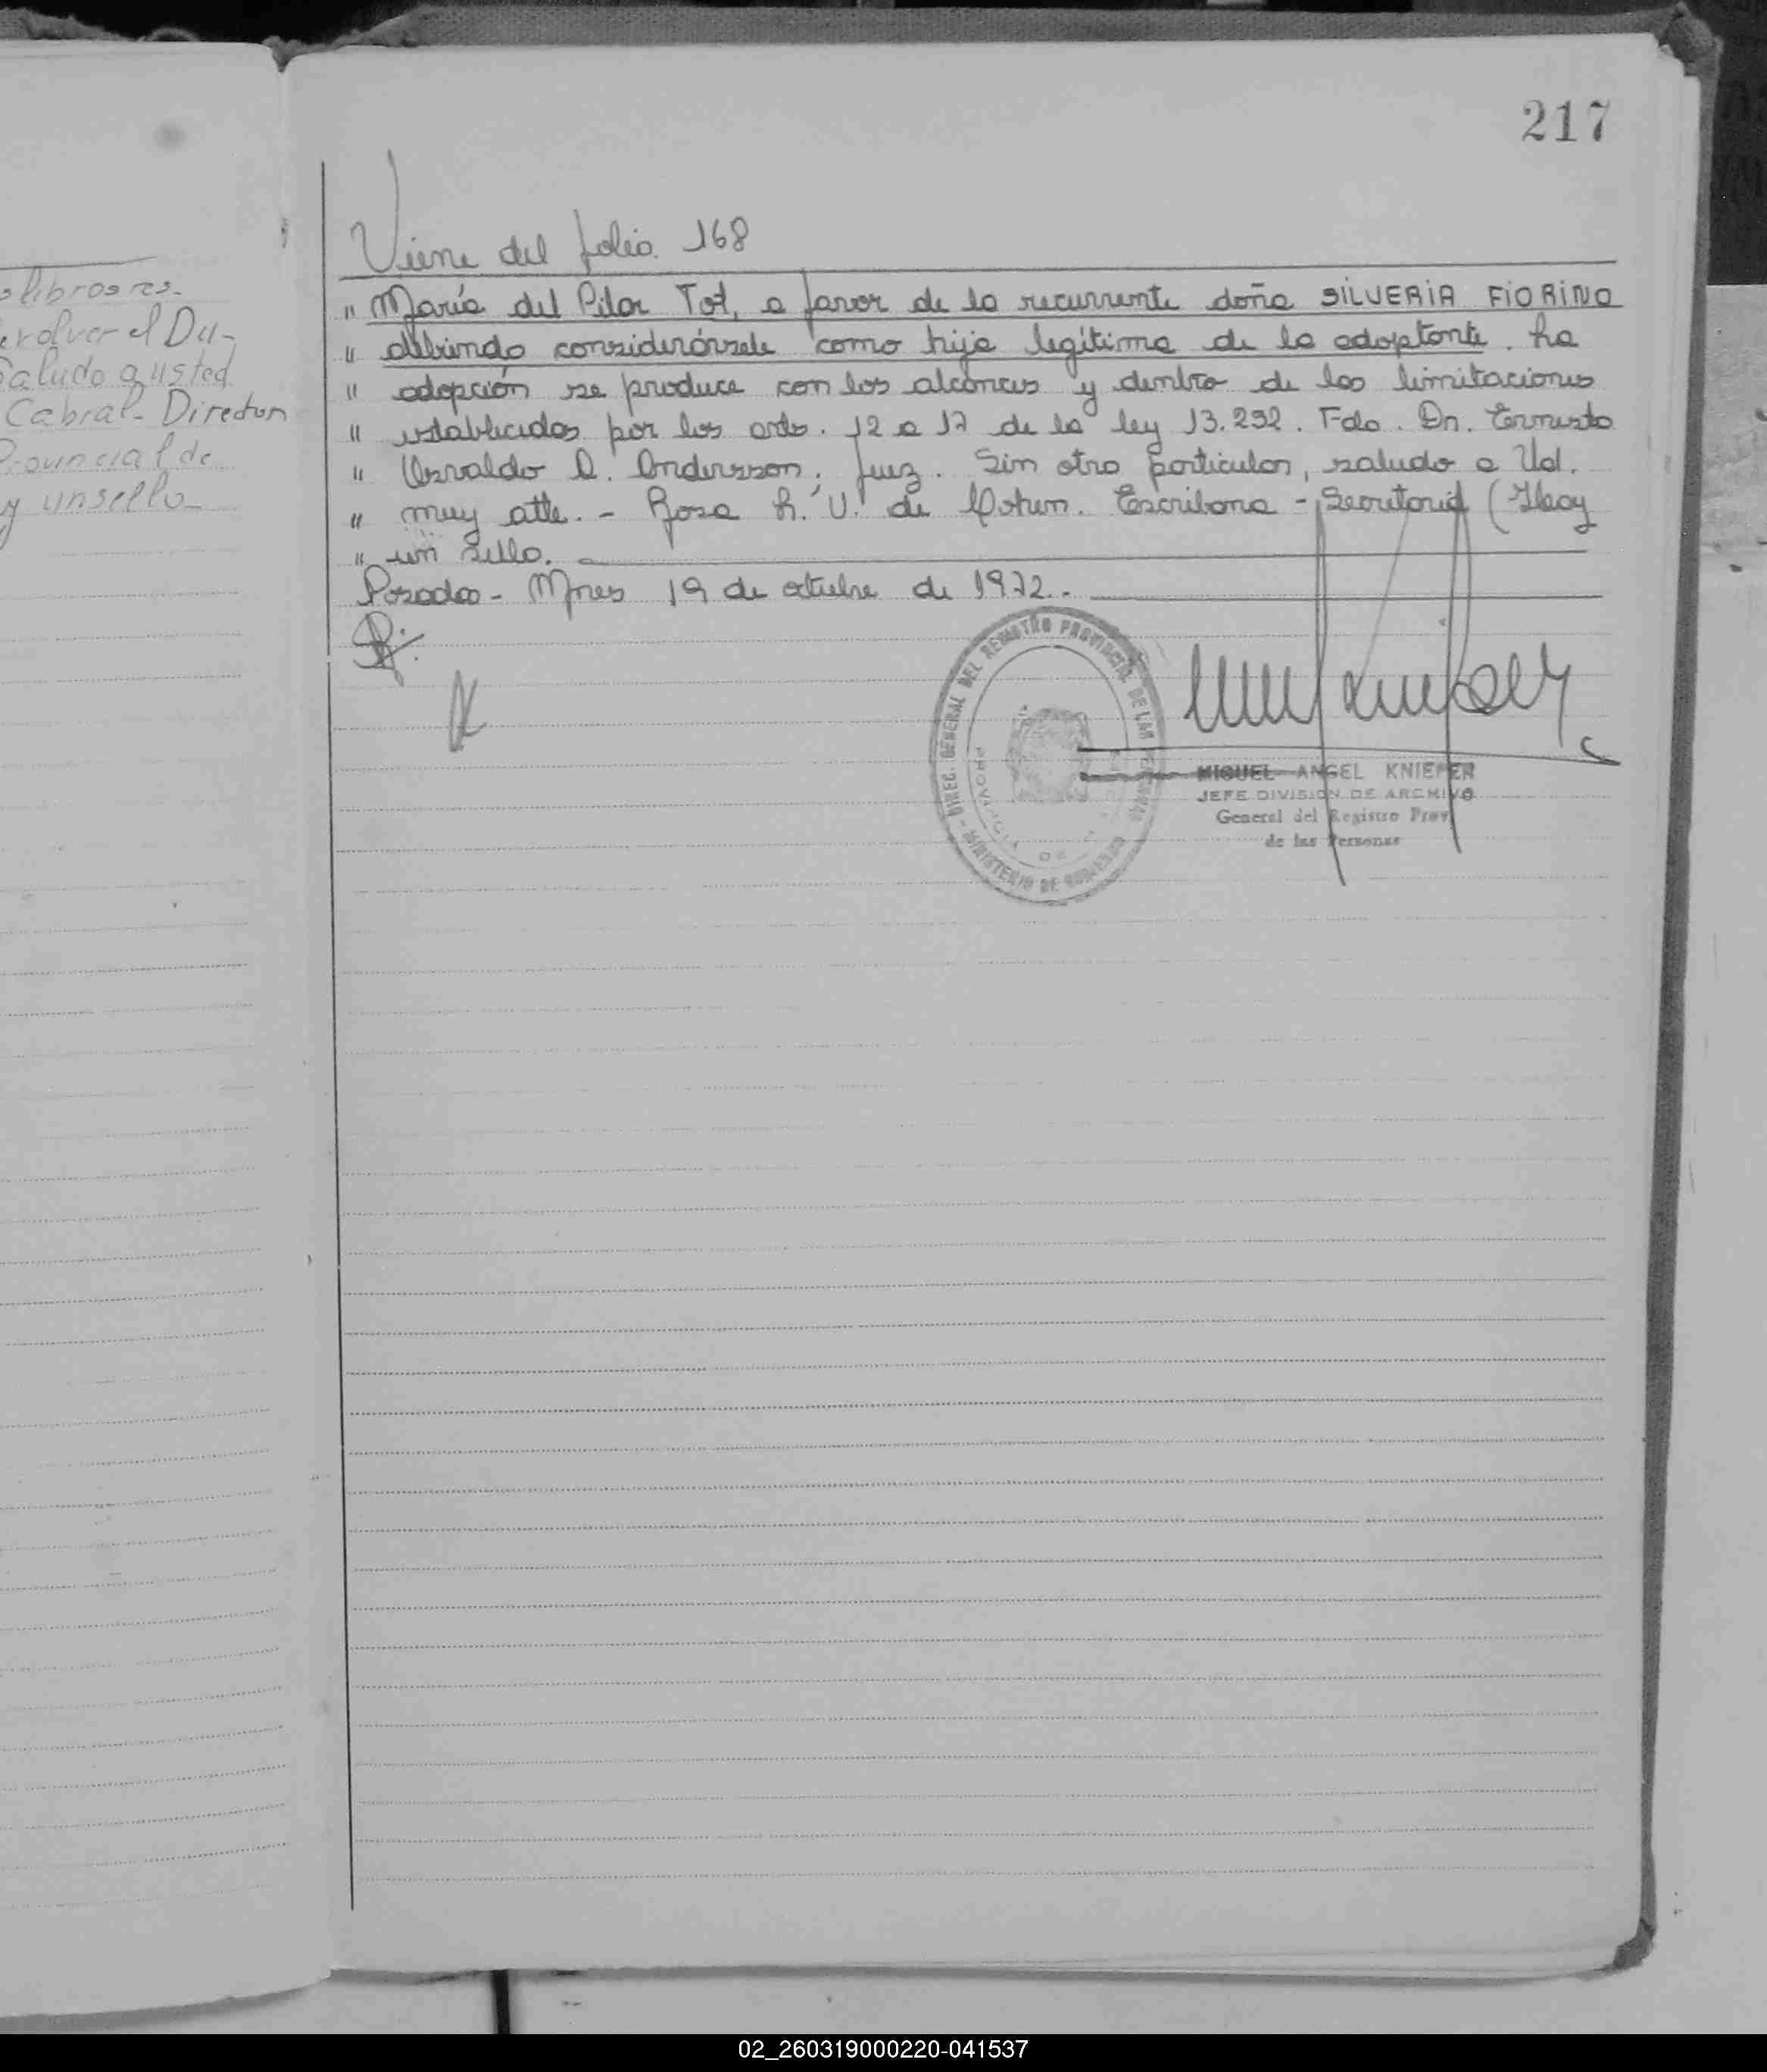 217
s libros res-
evolver el Du-
Saludo a usted
Cabral - Director
Provincial de
y un sello -
Viene del folio. 168
" María del Pilar Tot, a favor de la recurrente doña SILVERIA FIORINO
" debiendo considerársele como hija legítima de la adoptante. La
" adopción se produce con los alcances y dentro de las limitaciones
" establecidas por los arts. 12 a 17 de la ley 13.252. Fdo. Dr. Ernesto
" Osvaldo A. Andersson. Juez. Sin otro particular, saludo a Ud.
" muy atte. - Rosa L. V. de Cohen. Escribana - Secretaria (Hay
" un sello.
Posadas - Mnes 19 de octubre de 1972.-
DIREC. GENERAL DEL REGISTRO PROVINCIAL DE LAS PERSONAS
MINISTERIO DE GOBIERNO
PROVINCIA DE
MIGUEL ANGEL KNIEPER
JEFE DIVISION DE ARCHIVO
General del Registro Prov.
de las Personas
02_260319000220-041537